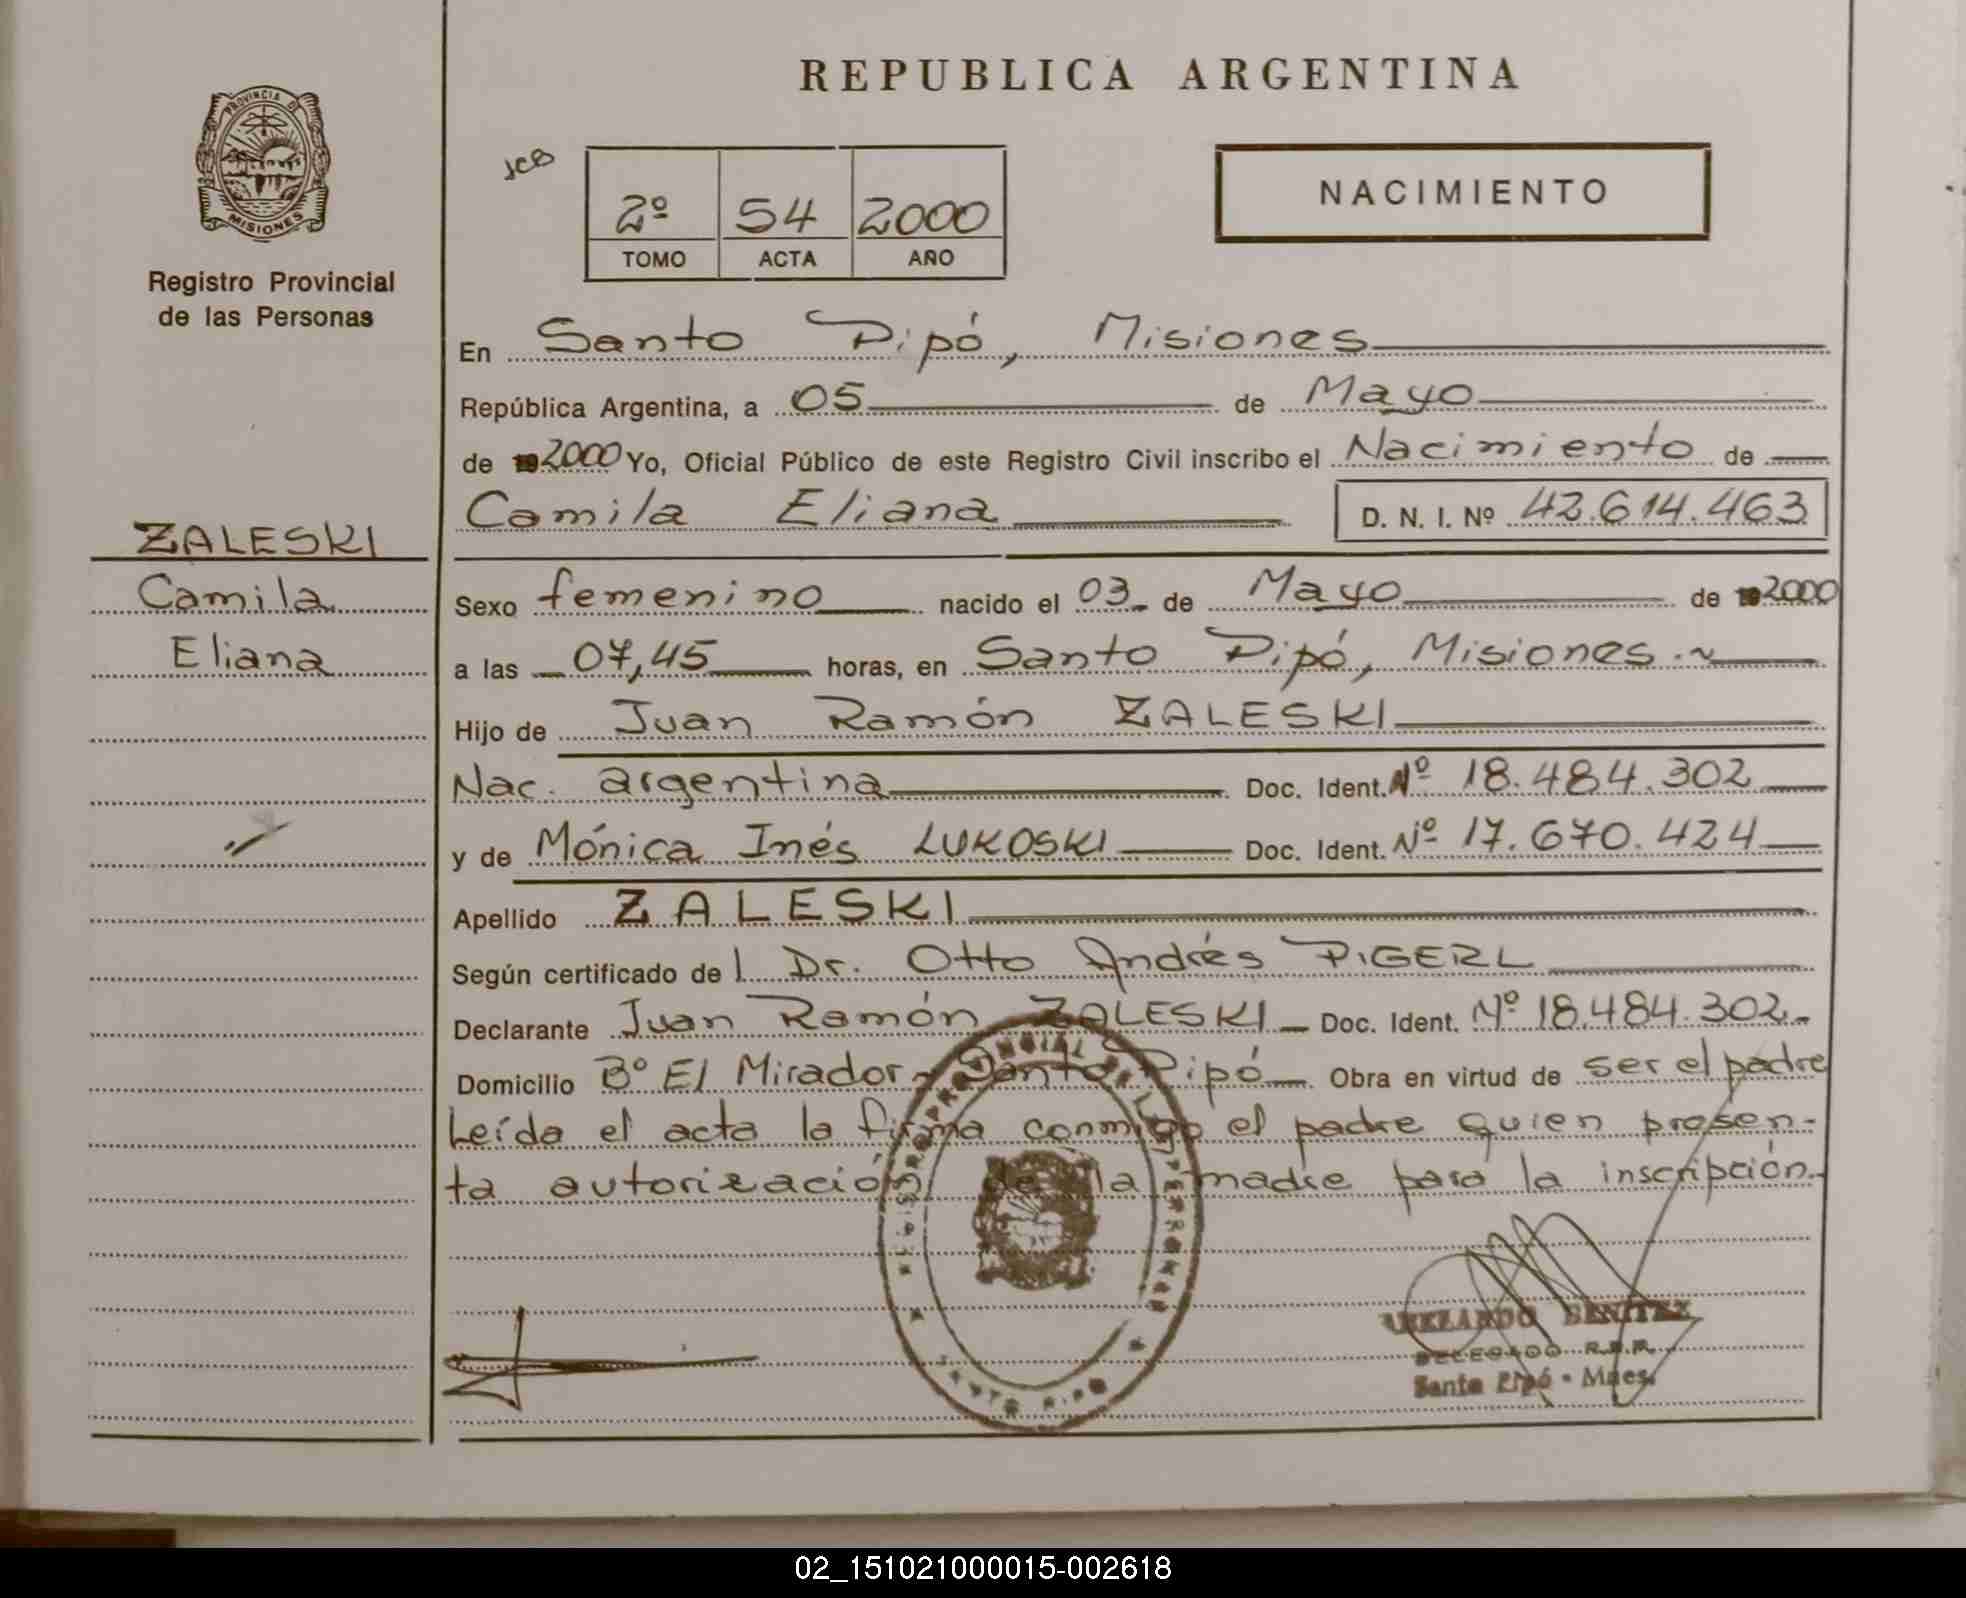 REPUBLICA ARGENTINA
PROVINCIA DE
MISIONES
Registro Provincial
de las Personas
JCB
2º 54 2000
TOMO ACTA AÑO
NACIMIENTO
En Santo Pipó, Misiones
República Argentina, a 05 de Mayo
de 2000 Yo, Oficial Público de este Registro Civil inscribo el Nacimiento de
Camila Eliana D. N. I. Nº 42.614.463
ZALESKI
Camila
Eliana
Sexo femenino nacido el 03 de Mayo de 2000
a las 07,45 horas, en Santo Pipó, Misiones.~
Hijo de Juan Ramón ZALESKI
Nac. argentina Doc. Ident. Nº 18.484.302
y de Mónica Inés LUKOSKI Doc. Ident. Nº 17.670.424
Apellido ZALESKI
Según certificado del Dr. Otto Andrés PIGERL
Declarante Juan Ramón ZALESKI Doc. Ident. Nº 18.484.302
Domicilio Bº El Mirador - Santo Pipó Obra en virtud de ser el padre
Leída el acta la firma conmigo el padre quien presen-
ta autorización de la madre para la inscripción.
BENITEZ
DELEGADO R.P.P.
Santo Pipó - Mnes.
SANTO PIPO
02_151021000015-002618